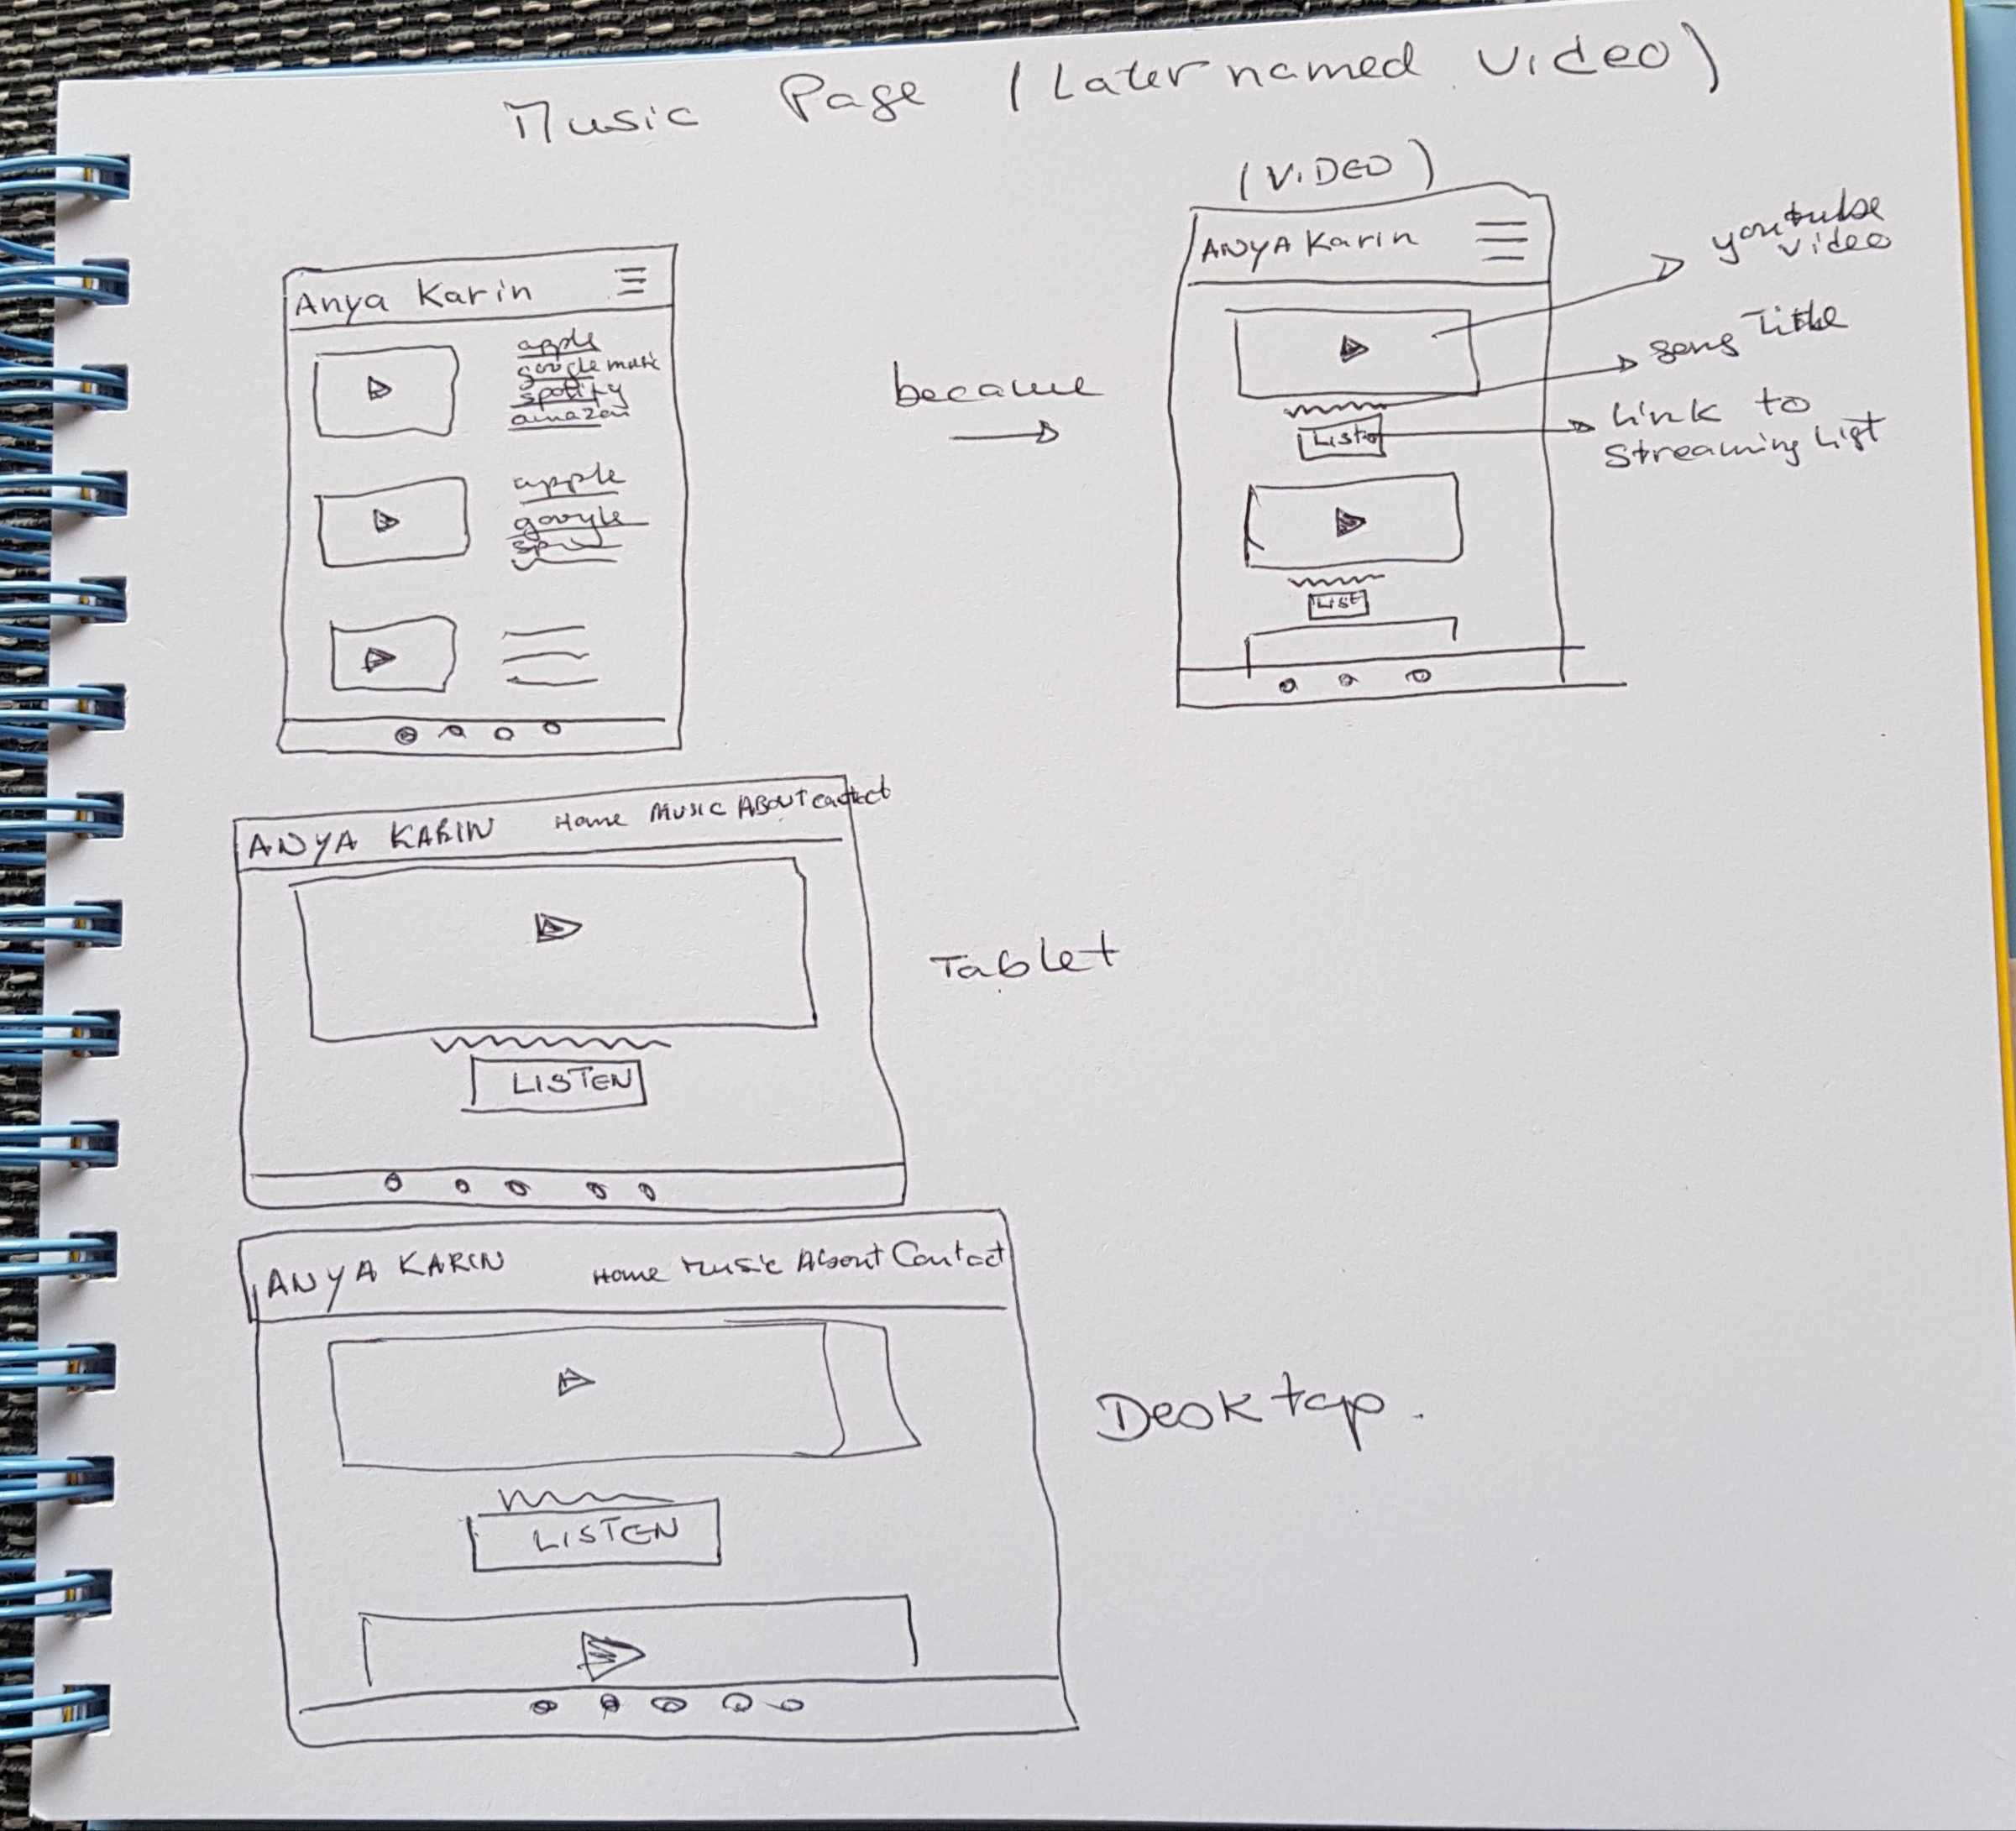 Music Page (Later named video)
Anya Karin
apple
google music
spotify
amazon
apple
google
became
(VIDEO)
ANYA Karin
youtube
video
song Title
List
Link to
Streaming List
List
ANYA KARIN Home Music ABOUT contact
LISTEN
Tablet
ANYA KARIN Home Music About Contact
LISTEN
Desktop.